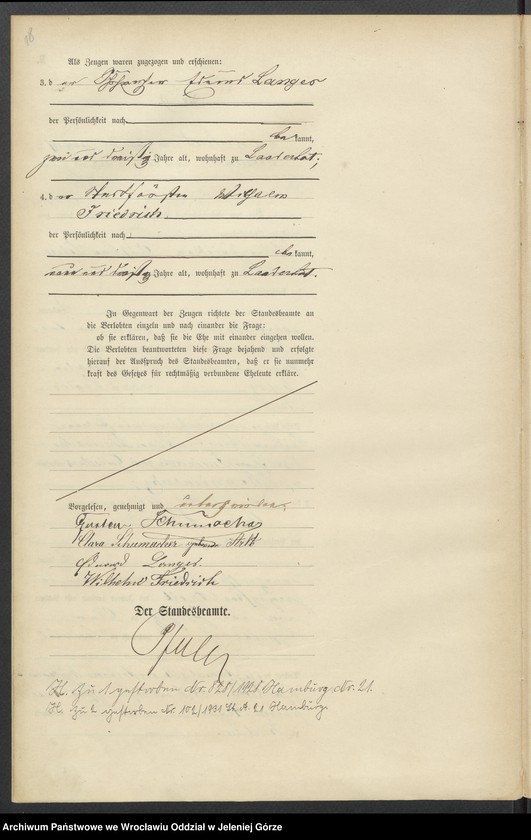 Als Zeugen waren zugezogen und erschienen:
3. d er Eduard Langer
der Persönlichkeit nach
be kannt,
zwei und dreißig Jahre alt, wohnhaft zu
4. d er Wilhelm
Friedrich
der Persönlichkeit nach
be kannt,
neun und dreißig Jahre alt, wohnhaft zu
In Gegenwart der Zeugen richtete der Standesbeamte an
die Verlobten einzeln und nach einander die Frage:
ob sie erklären, daß sie die Ehe mit einander eingehen wollen.
Die Verlobten beantworteten diese Frage bejahend und erfolgte
hierauf der Ausspruch des Standesbeamten, daß er sie nunmehr
kraft des Gesetzes für rechtmäßig verbundene Eheleute erkläre.
Vorgelesen, genehmigt und unterschrieben.
Schumacher
Clara Schumacher geborene
Eduard Langer
Wilhelm Friedrich
Der Standesbeamte.
H. zu 1 gestorben Nr. 828/1928 Hamburg Nr. 21.
H. zu 2 gestorben Nr. 102/1931 St. A. 21 Hamburg.
Archiwum Państwowe we Wrocławiu Oddział w Jeleniej Górze